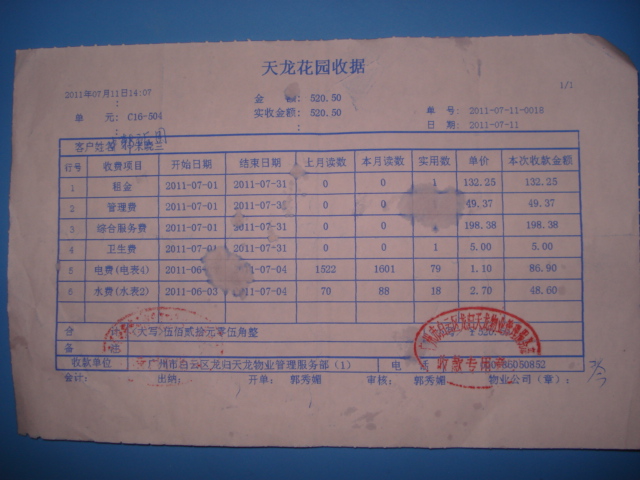 天龙花园收据
1/1
2011年07月11日14:07
金 额: 520.50
单 元: C16-504
实收金额: 520.50
单 号: 2011-07-11-0018
日 期: 2011-07-11
客户姓名
行号 收费项目 开始日期 结束日期 上月读数 本月读数 实用数 单价 本次收款金额
1 租金 2011-07-01 2011-07-31 0 0 1 132.25 132.25
2 管理费 2011-07-01 2011-07-31 0 0 49.37 49.37
3 综合服务费 2011-07-01 2011-07-31 0 0 198.38 198.38
4 卫生费 2011-07-01 2011-07-31 0 0 1 5.00 5.00
5 电费(电表4) 2011-06 07-04 1522 1601 79 1.10 86.90
6 水费(水表2) 2011-06-03 2011-07-04 70 88 18 2.70 48.60
合 计 (大写)伍佰贰拾元零伍角整
备 注
收款单位 广州市白云区龙归天龙物业管理服务部(1) 电 话 36050852
收款专用章
会计: 出纳: 开单: 郭秀媚 审核: 郭秀媚 物业公司(章):